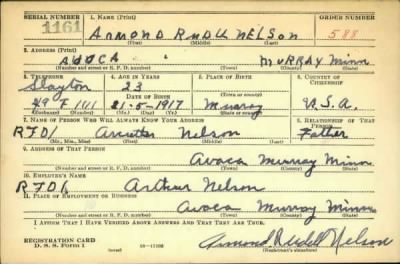 SERIAL NUMBER 1. NAME (Print) ORDER NUMBER
1161 ARMOND RUDU NELSON 588
(First) (Middle) (Last)
2. ADDRESS (Print)
AVOCA MURRAY Minn.
(Number and street or R. F. D. number) (Town) (County) (State)
3. TELEPHONE 4. AGE IN YEARS 5. PLACE OF BIRTH 6. COUNTRY OF CITIZENSHIP
Slayton 23
DATE OF BIRTH
49 F 1111 21-5-1917 Murray U.S.A.
(Exchange) (Number) (Mo.) (Day) (Yr.) (Town or county) (State or country)
7. NAME OF PERSON WHO WILL ALWAYS KNOW YOUR ADDRESS 8. RELATIONSHIP OF THAT PERSON
RFD1 Nelson Father
(Mr., Mrs., Miss) (First) (Middle) (Last)
9. ADDRESS OF THAT PERSON
Avoca Murray Minn
(Number and street or R. F. D. number) (Town) (County) (State)
10. EMPLOYER'S NAME
RFD1 Arthur Nelson
11. PLACE OF EMPLOYMENT OR BUSINESS
Avoca Murray Minn
(Number and street or R. F. D. number) (Town) (County) (State)
I AFFIRM THAT I HAVE VERIFIED ABOVE ANSWERS AND THAT THEY ARE TRUE.
REGISTRATION CARD
D. S. S. Form 1 Armond Rudell Nelson
(Registrant's signature)